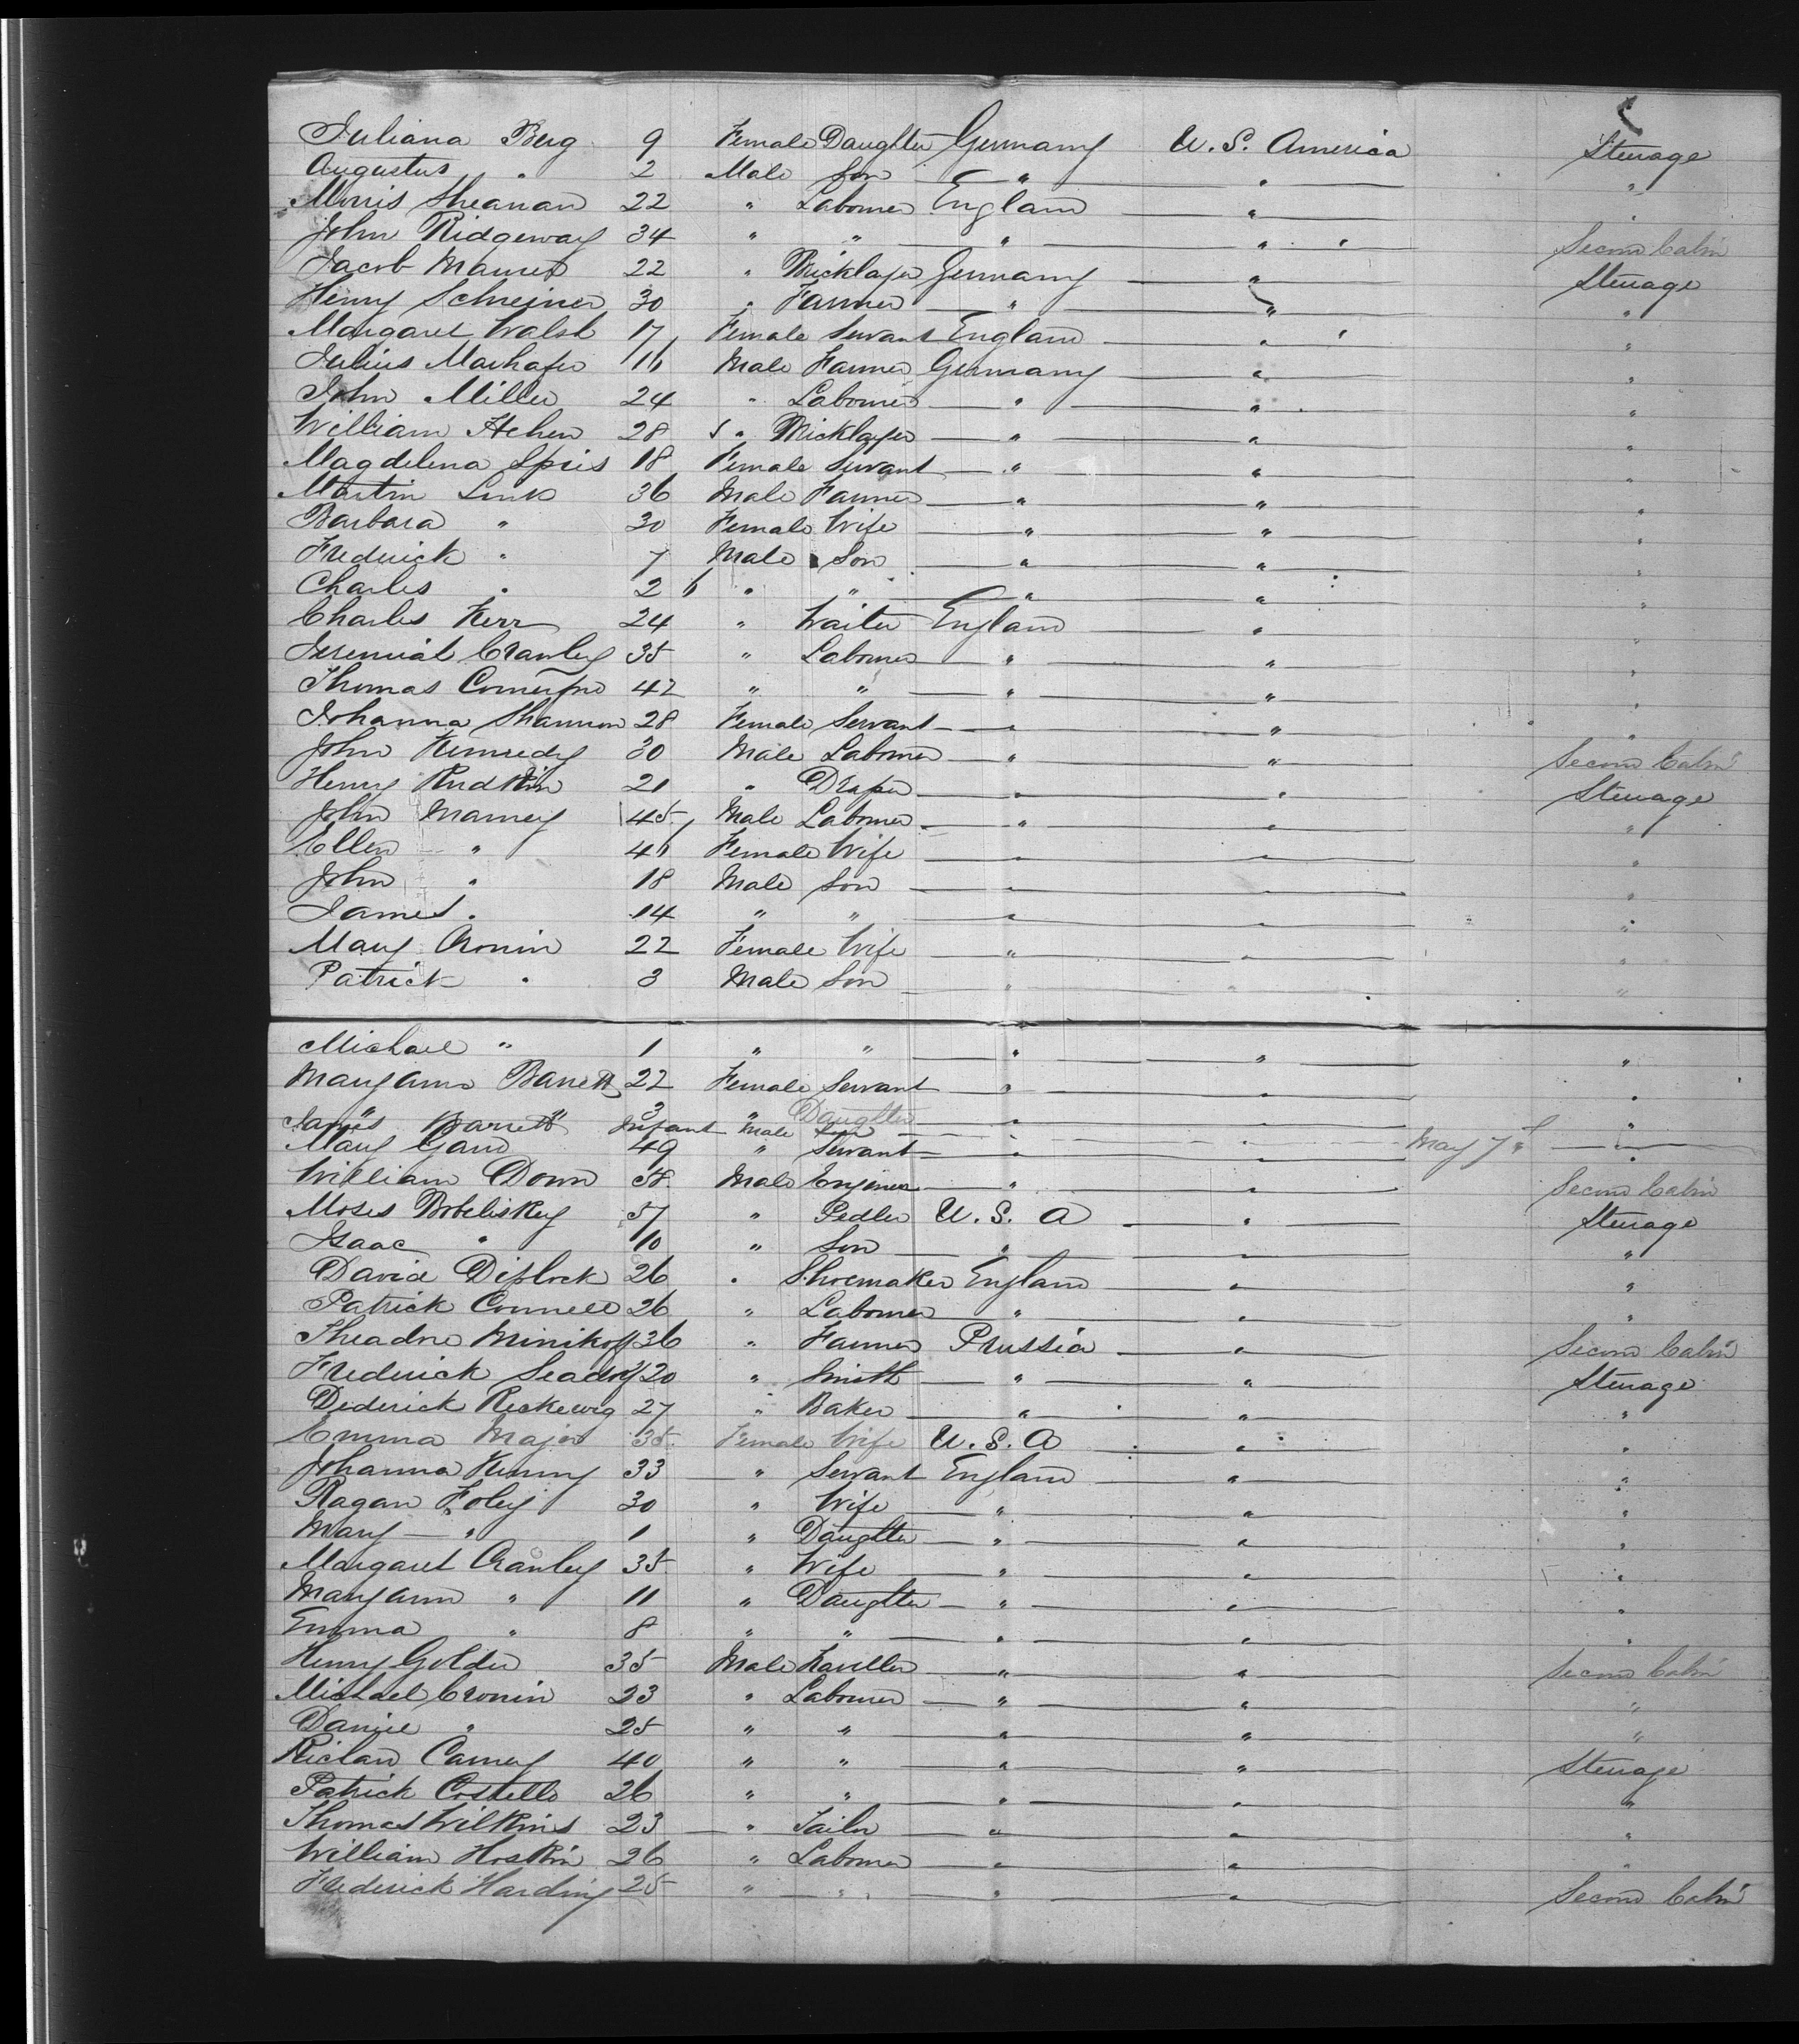 Juliana Berg 9 Female Daughter Germany U. S. America Steerage
Augustus " 2 Male Son " " "
Morris Sheanan 22 " Labourer England " "
John Ridgeway 34 " " " " Second Cabin
Jacob 22 " Bricklayer Germany " Steerage
Henry Schreiner 30 " Farmer " " "
Margaret Walsh 17 Female Servant England " "
Julius 16 Male Farmer Germany " "
John Miller 24 " Labourer " " "
William 28 " Bricklayer " " "
Magdelena Spies 18 Female Servant " " "
Martin Link 36 Male Farmer " " "
Barbara " 30 Female Wife " " "
Frederick " 7 Male Son " " "
Charles " 2 " " " " "
Charles Kerr 24 " Waiter England " "
Jeremiah Crawley 35 " Labourer " " "
Thomas Comerford 42 " " " " "
Johanna Shannon 28 Female Servant " " "
John Kennedy 30 Male Labourer " " Second Cabin
Henry Rudkin 21 " Draper " " Steerage
John Marney 45 Male Labourer " " "
Ellen " Female Wife " " "
John " 18 Male Son " " "
James " 14 " " " " "
Mary Cronin 22 Female Wife " " "
Patrick " 3 Male Son " " "
Michael " 1 " " " " "
Maryann Barrett 22 Female Servant " " "
" " 3 " Daughter " " "
James Barrett Infant Male Son " " May 7th "
Mary 49 " Servant " " "
William Down 58 Male Engineer " " Second Cabin
Moses 57 " Pedler U. S. A " Steerage
Isaac " 10 " Son " " "
David Diplock 26 " Shoemaker England " "
Patrick Connell 26 " Labourer " " "
Theadore Minikoff 36 " Farmer Prussia " Second Cabin
Frederick Seadorf 20 " Smith " " Steerage
Diderick Reckewig 27 " Baker " " "
Emma Major 35 Female Wife U. S. A " "
Johanna Kenny 33 " Servant England " "
Ragan Foley 30 " Wife " " "
Mary " 1 " Daughter " " "
Margaret Crawley 35 " Wife " " "
Maryann " 11 " Daughter " " "
Emma " 8 " " " " "
Henry Golder 35 Male Traveller " " Second Cabin
Michael Cronin 23 " Labourer " " "
Daniel " 25 " " " " "
Richard Carney 40 " " " " Steerage
Patrick Costello 26 " " " " "
Thomas Wilkins 23 " Tailor " " "
William Hoskin 26 " Labourer " " "
Frederick Harding 25 " " " " Second Cabin